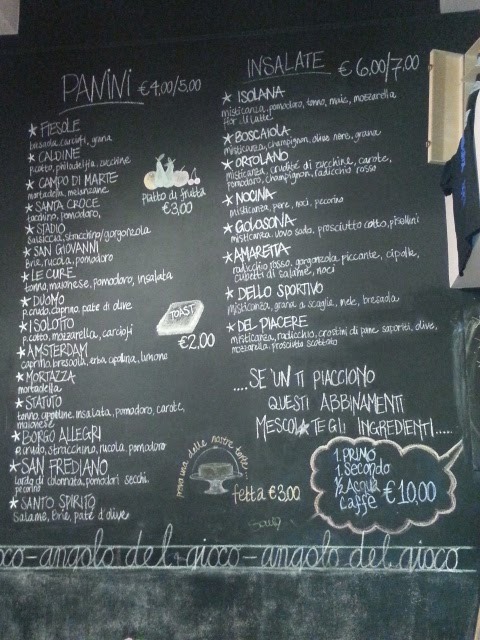 PANINI €4,00/5,00
★ FIESOLE
bresaola, carciofi, grana
★ CALDINE
p.cotto, philadelfia, zucchine
★ CAMPO DI MARTE
mortadella, melanzane
★ SANTA CROCE
tacchino, pomodoro,
★ STADIO
salsiccia, stracchino/gorgonzola
★ SAN GIOVANNI
Brie, rucola, pomodoro
★ LE CURE
tonno, maionese, pomodoro, insalata
★ DUOMO
p.crudo, caprino, patè di olive
★ ISOLOTTO
p.cotto, mozzarella, carciofi
★ AMSTERDAM
caprino, bresaola, erba cipollina, limone
★ MORTAZZA
mortadella
★ STATUTO
tonno, cipolline, insalata, pomodoro, carote,
maionese
★ BORGO ALLEGRI
p.crudo, stracchino, rucola, pomodoro
★ SAN FREDIANO
lardo di colonnata, pomodori secchi,
pecorino
★ SANTO SPIRITO
Salame, Brie, patè d'olive
piatto di frutta
€3,00
TOAST
€2,00
prova una delle nostre torte...
fetta €3,00
INSALATE €6,00/7,00
★ ISOLANA
misticanza, pomodoro, tonno, mais, mozzarella
fior di latte
★ BOSCAIOLA
misticanza, champignon, olive nere, grana
★ ORTOLANO
misticanza, crudité di zucchine, carote,
pomodoro, champignon, radicchio rosso
★ NOCINA
misticanza, pere, noci, pecorino
★ GOLOSONA
misticanza, uovo sodo, prosciutto cotto, pisellini
★ AMARETTA
radicchio rosso, gorgonzola piccante, cipolle,
cubetti di salame, noci
★ DELLO SPORTIVO
misticanza, grana a scaglie, mele, bresaola
★ DEL PIACERE
misticanza, radicchio, crostini di pane saporiti, olive,
mozzarella, prosciutto
....SE 'UN TI PIACCIONO
QUESTI ABBINAMENTI
MESCOL★TE GLI INGREDIENTI.....
1 PRIMO
1 Secondo
½ Acqua
caffè €10,00
co-angolo del gioco-angolo del gioco